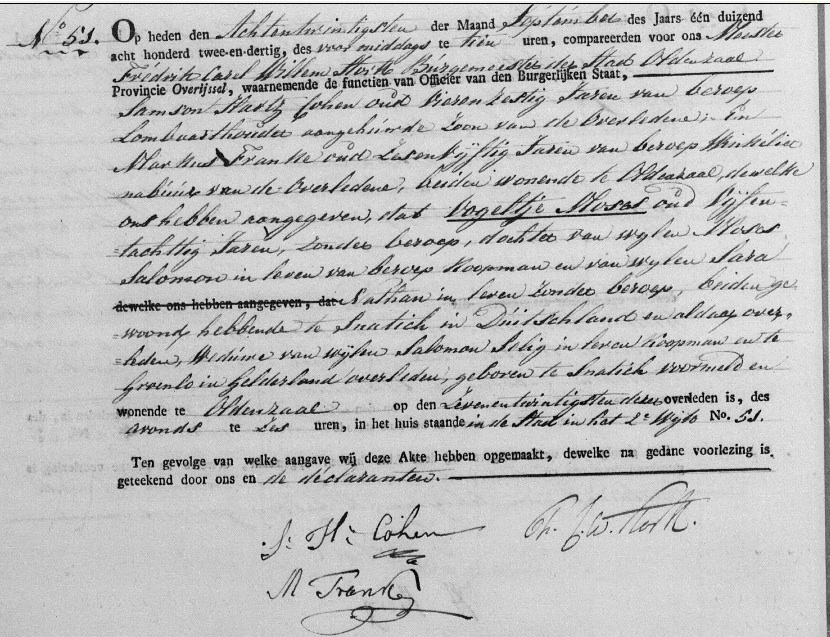 N° 51. Op heden den Achtentwintigsten der Maand September des Jaars één duizend
acht honderd twee-en-dertig, des voor middags te tien uren, compareerden voor ons Meester
Fredrik Carel Willem Stork Burgemeester der Stad Oldenzaal
Provincie Overijssel, waarnemende de functien van Officier van den Burgerlijken Staat,
Samson Hertz Cohen oud Vierenzestig Jaren van beroep
Lombaardhouder aangehuwde Zoon van de Overledene; En
Markus Franke oud Zesenvijftig Jaren van beroep Winkelier
nabuur van de Overledene, beiden wonende te Oldenzaal, dewelke
ons hebben aangegeven, dat Vogeltje Moses oud Vijfen-
tachttig Jaren, zonder beroep, dochter van wylen Moses
Salomon in leven van beroep Koopman en van wylen Sara
dewelke ons hebben aangegeven, dat Nathan in leven zonder beroep, beiden ge-
woond hebbende te Snatich in Duitschland en aldaar over-
leden, Weduwe van wylen Salomon Selig in leven Koopman en te
Groenlo in Gelderland overleden, geboren te Snatich voormeld en
wonende te Oldenzaal op den Zevenentwintigsten dezer overleden is, des
avonds te Zes uren, in het huis staande in de Stad in het 2e Wijk No. 51.
Ten gevolge van welke aangave wij deze Akte hebben opgemaakt, dewelke na gedane voorlezing is
geteekend door ons en de declaranten.
S. Hz Cohen
M Franke